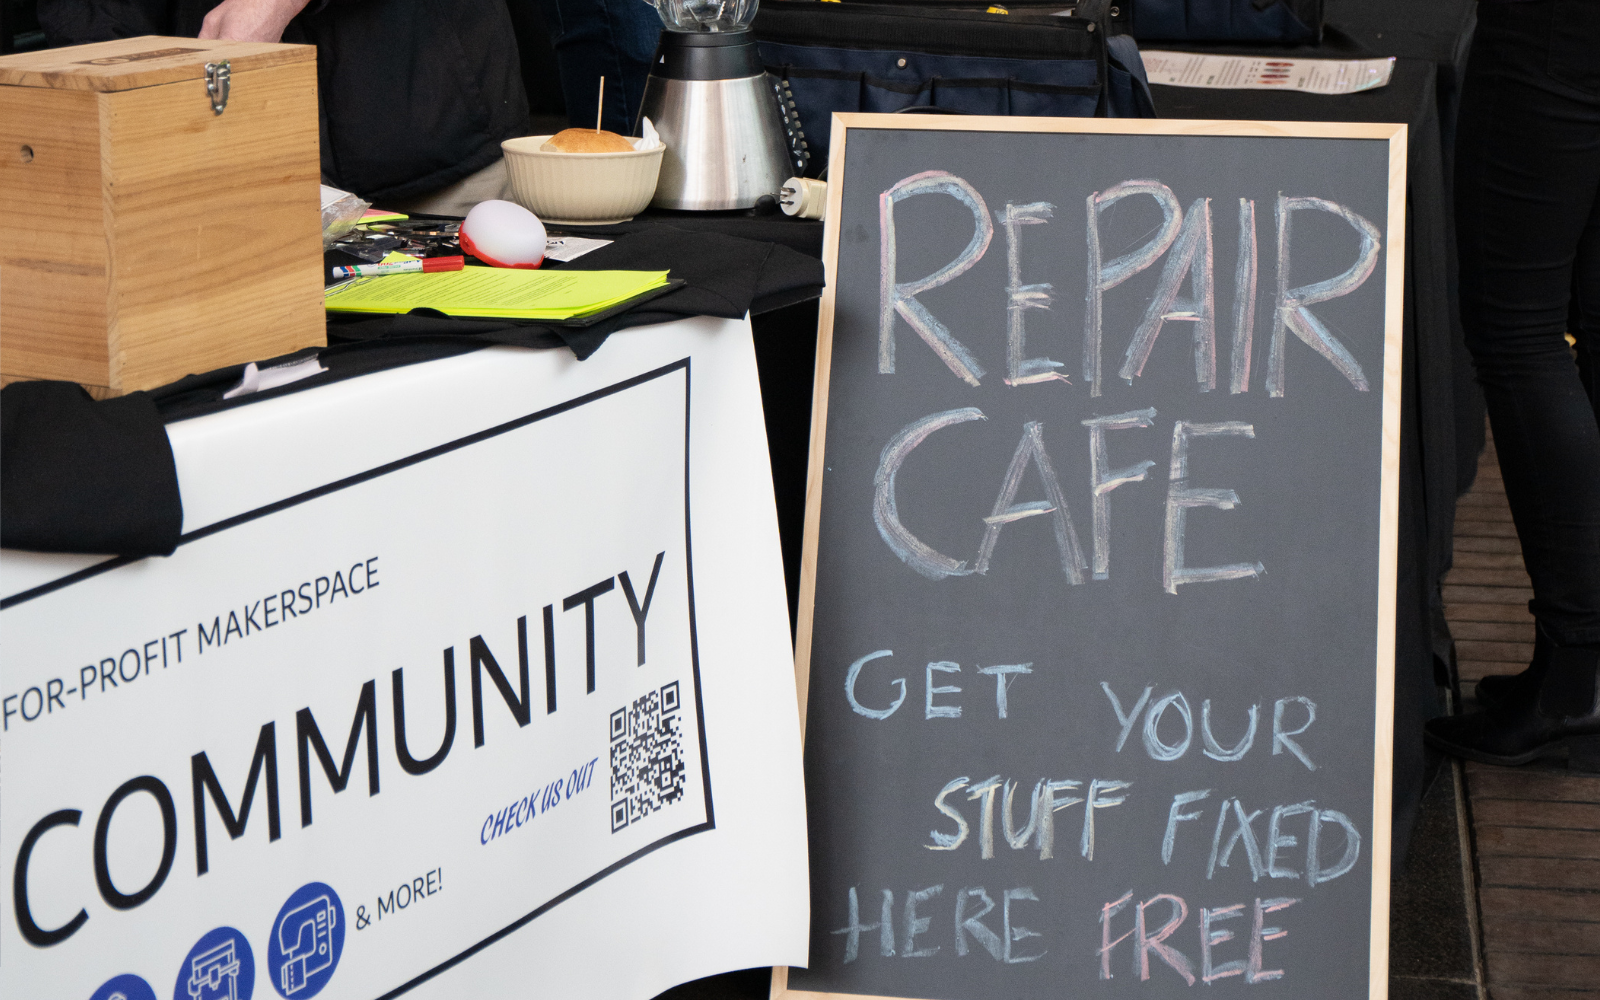 FOR-PROFIT MAKERSPACE
COMMUNITY
CHECK US OUT
& MORE!
REPAIR
CAFE
GET YOUR
STUFF FIXED
HERE FREE